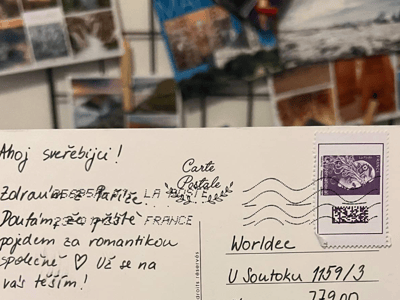 Ahoj sveřebijci!
Zdravím z Paříže.
Doufám, že příště
pojdem za romantikou
společně ♡ Už se na
vás těším!
Carte
Postale
LA POSTE
FRANCE
Worldec
U Soutoku 1159/3
779 00